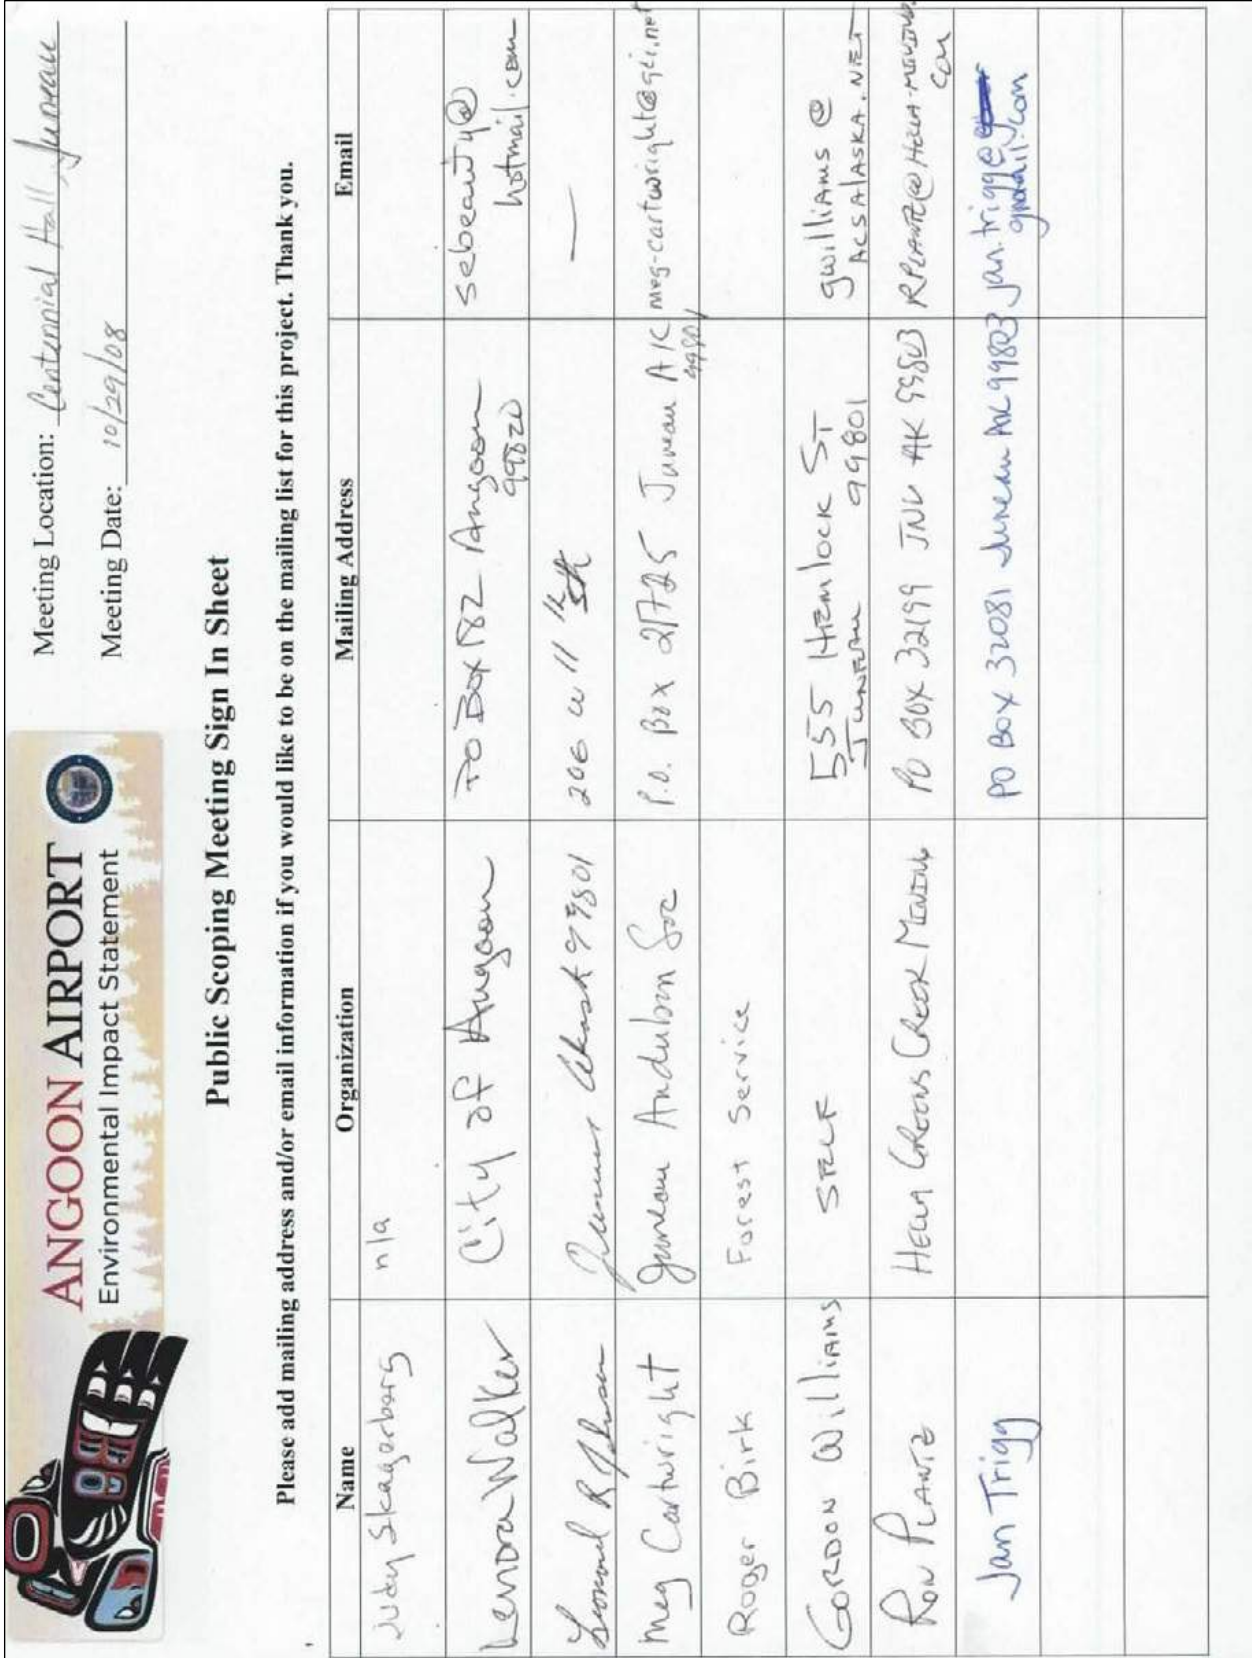 ANGOON AIRPORT
Environmental Impact Statement
Meeting Location: Centennial Hall, Juneau
Meeting Date: 10/29/08
Public Scoping Meeting Sign In Sheet
Please add mailing address and/or email information if you would like to be on the mailing list for this project. Thank you.
Name Organization Mailing Address Email
Judy Skagerberg n/a
Lenora Walker City of Angoon PO Box 182 Angoon 99820 sebeauty@hotmail.com
Leonard R Johnson Juneau Alaska 99801 206 W 11th —
Meg Cartwright Juneau Audubon Soc P.O. Box 21725 Juneau AK 99801 meg-cartwright@gci.net
Roger Birk Forest Service
GORDON WilliAMS SELF 555 HEMlOCK ST JUNEAU 99801 gwilliAMS@ACSAlASKA.NET
RON PLANTZ HECLA GREENS CREEK MINING PO BOX 32199 JNU AK 99803 RPLANTZ@HECLA-MINING.COM
Jan Trigg PO Box 32081 Juneau AK 99803 jan.trigg@gmail.com